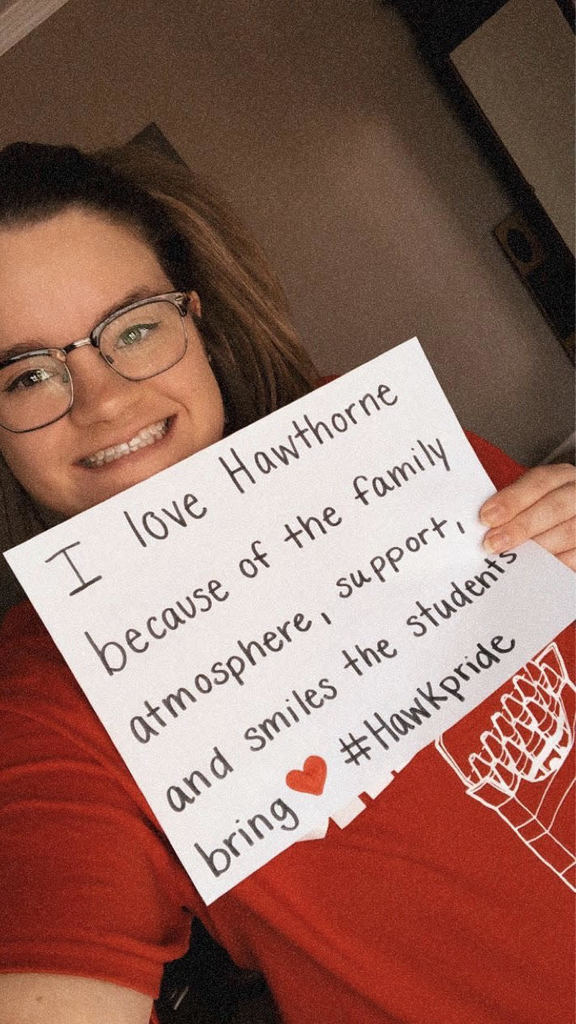 I love Hawthorne
because of the family
atmosphere, support,
and smiles the students
bring ❤️ #Hawkpride